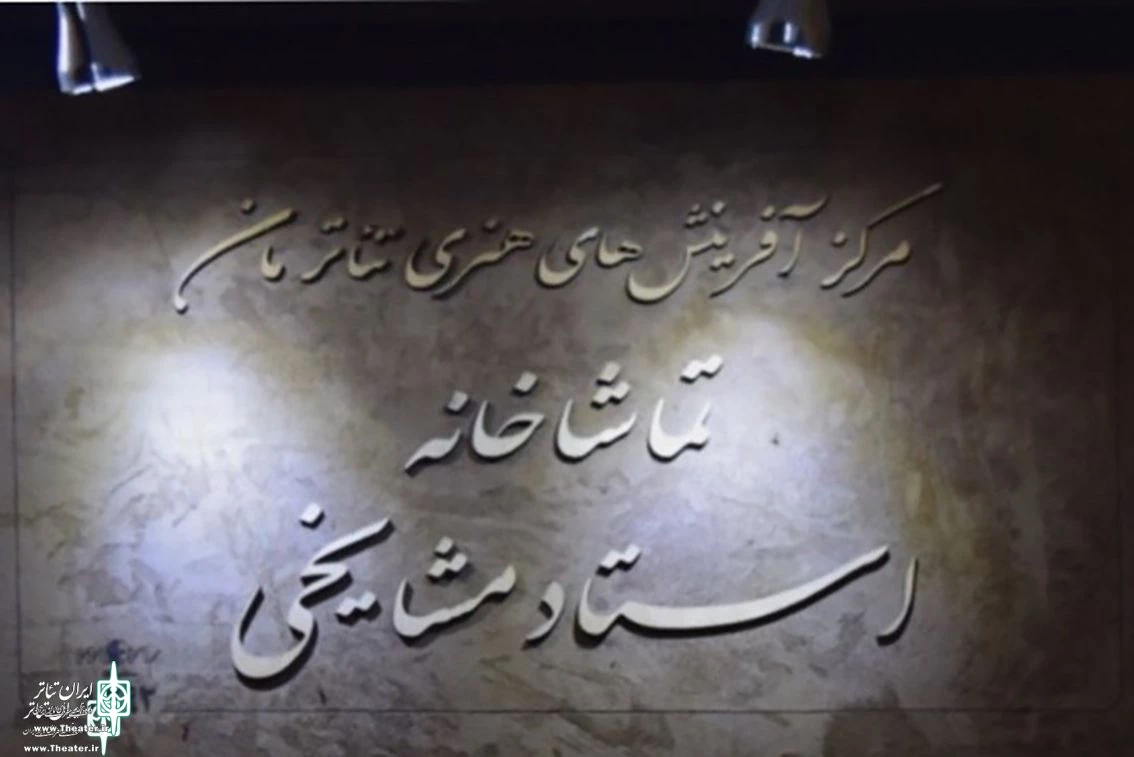 مرکز آفرینش های هنری تئاتر مان
تماشاخانه
استاد مشایخی
ایران تئاتر
www.Theater.ir
www.Theater.ir